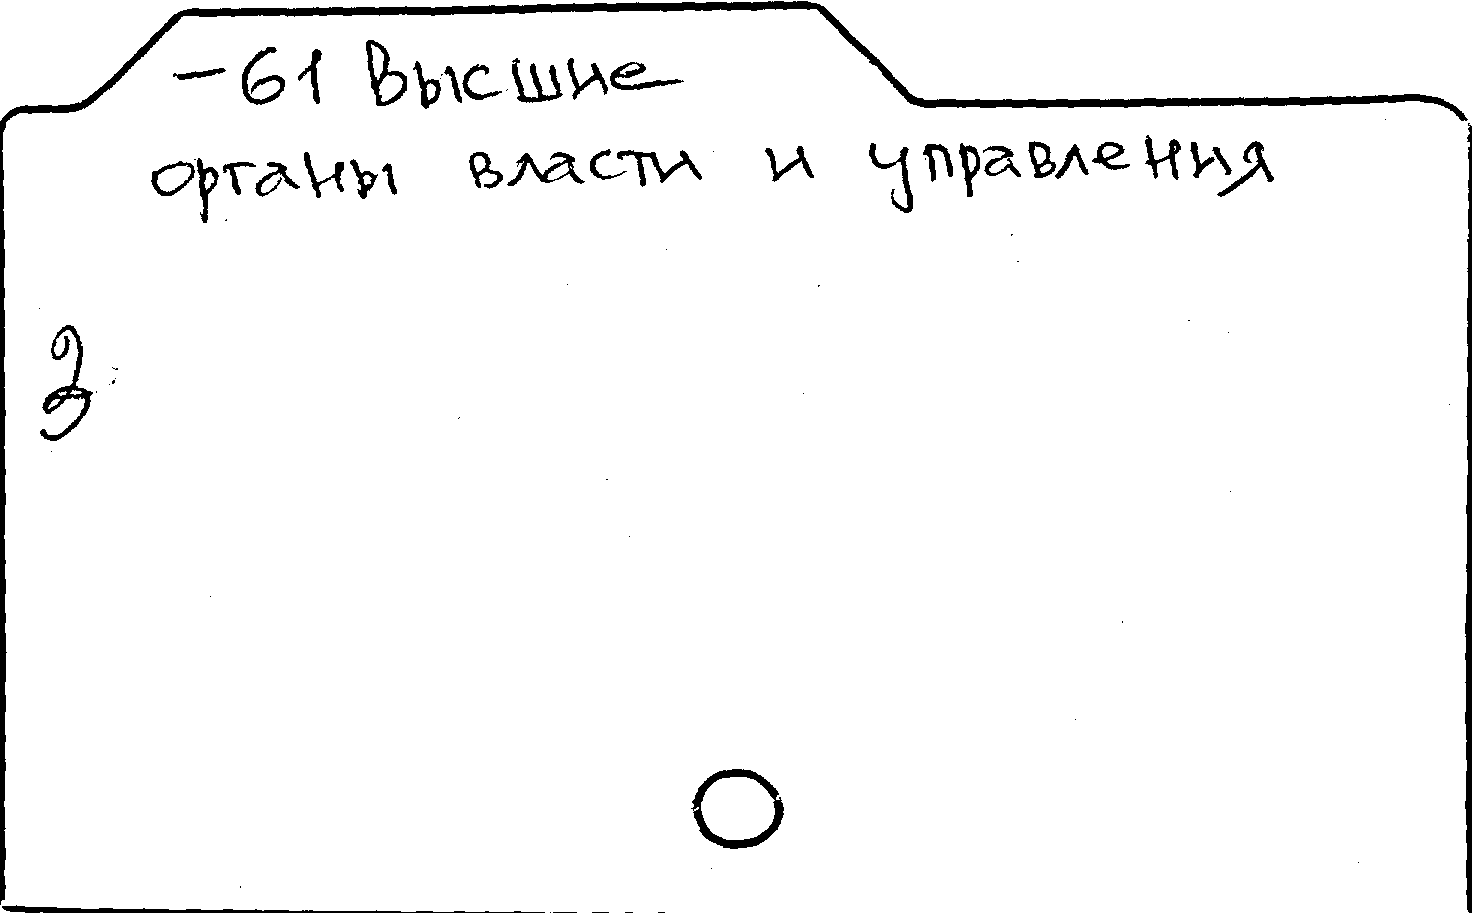 -61 Высшие
органы власти и управления
З